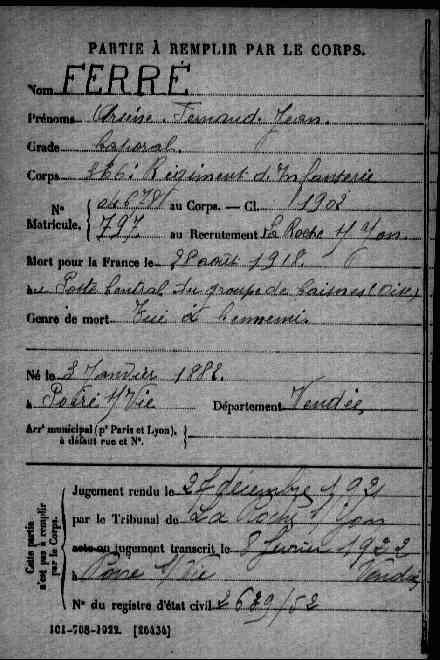 PARTIE À REMPLIR PAR LE CORPS.
Nom FERRÉ
Prénoms Arsène Fernand Jean.
Grade Caporal.
Corps 366e Régiment d'Infanterie
N° Matricule. au Corps. — Cl. 1902
797 au Recrutement La Roche s/ Yon
Mort pour la France le 28 août 1918.
à Poste Central du groupe de (Oise)
Genre de mort Tué à l'ennemi.
Né le 3 Janvier 1882.
à Poiré s/Vie Département Vendée,
Arrt municipal (pr Paris et Lyon),
à défaut rue et N°.
Cette partie n'est pas à remplir par le Corps.
Jugement rendu le 27 décembre 1921
par le Tribunal de La Roche s/ Yon
acte ou jugement transcrit le 8 février 1922
à Poiré s/Vie Vendée
N° du registre d'état civil 2629/52
101-708-1922. [26434]